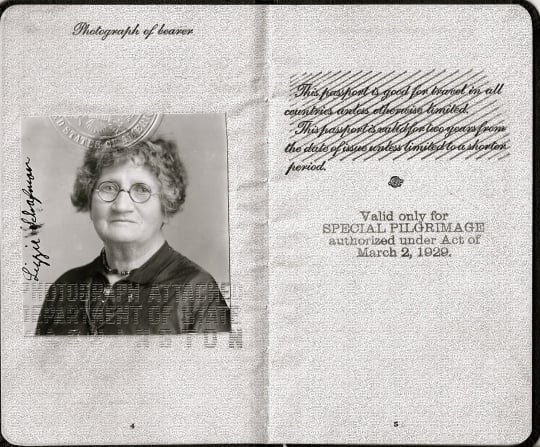 Photograph of bearer
STATES OF
Lizzie Schafman
PHOTOGRAPH ATTACHED
DEPARTMENT OF STATE
4
This passport is good for travel in all
countries unless otherwise limited.
This passport is valid for two years from
the date of issue unless limited to a shorter
period.
Valid only for
SPECIAL PILGRIMAGE
authorized under Act of
March 2, 1929.
5